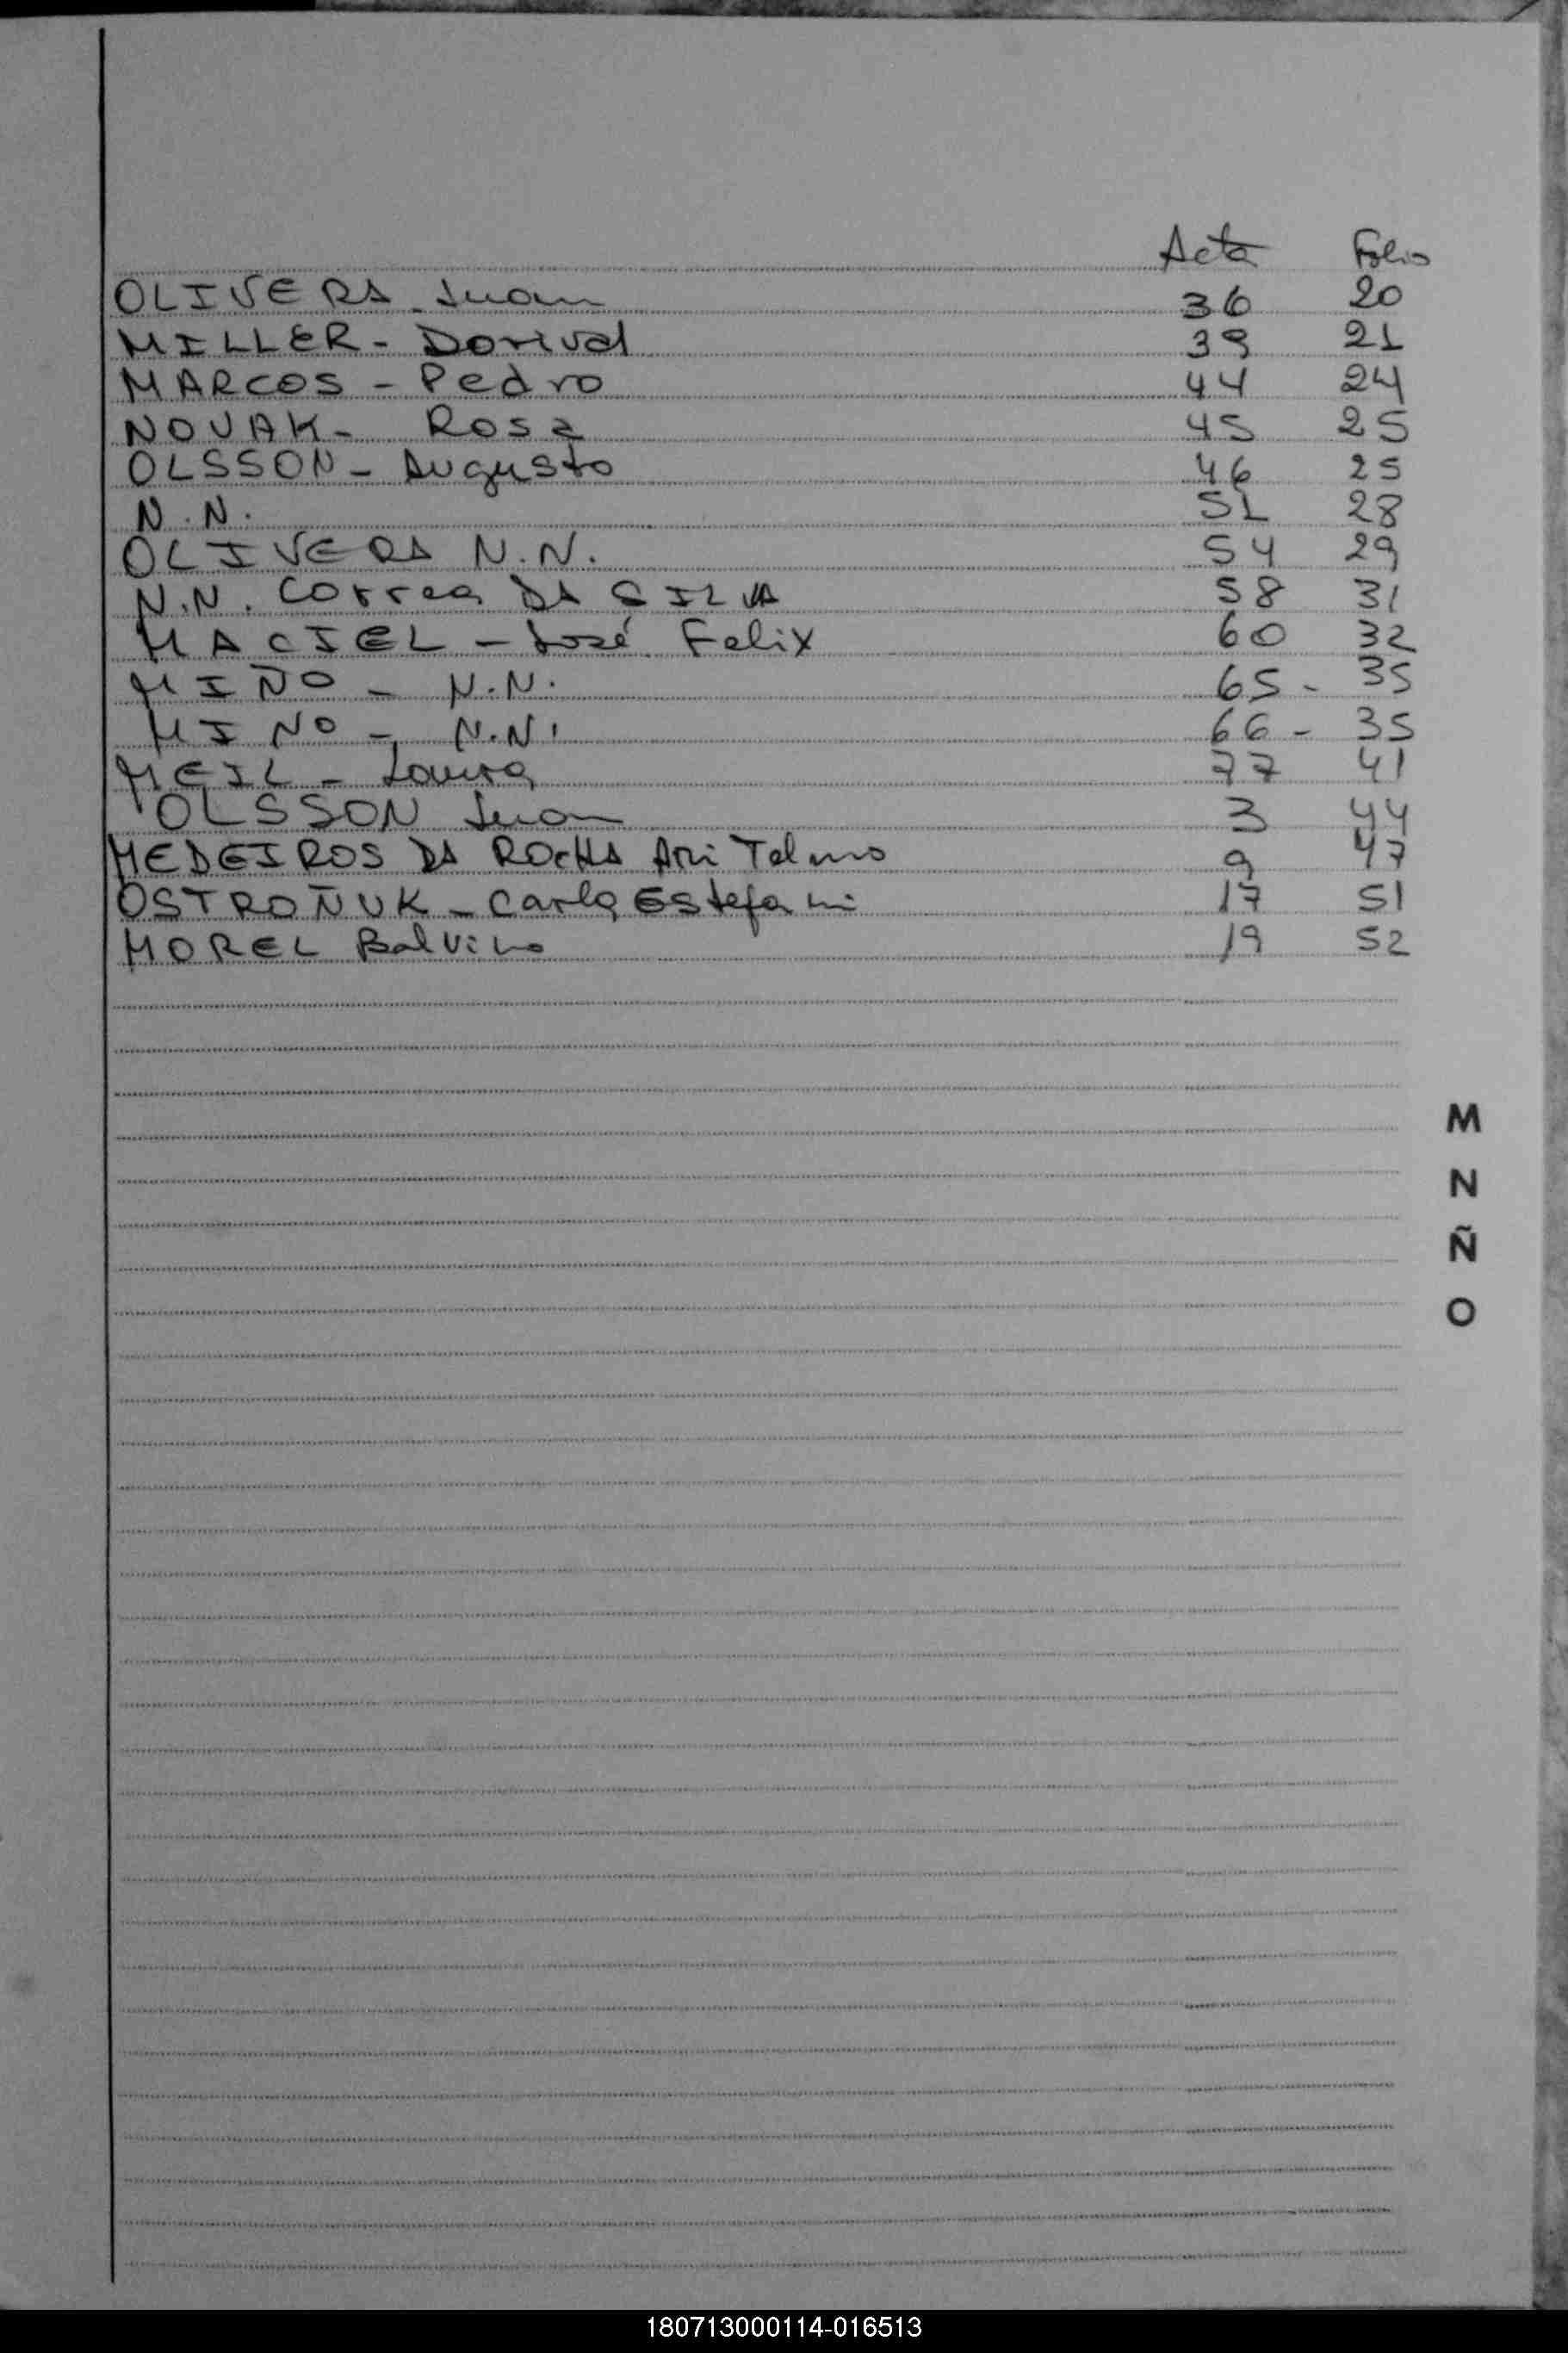 Acta Folio
OLIVERA - Juan 36 20
MILLER - Dorival 39 21
MARCOS - Pedro 44 24
NOVAK - Rosa 45 25
OLSSON - Augusto 46 25
N.N. 51 28
OLIVERA N.N. 54 29
N.N. Correa DA SILVA 58 31
MACIEL - José Felix 60 32
MIÑO - N.N. 65 - 35
MINO - N.N. 66 - 35
MEIL - Laura 77 41
OLSSON Juan 3 44
MEDEIROS DA ROCHA Ari Telmo 9 47
OSTROÑUK - Carlos Estefani 17 51
MOREL Balvino 19 52
M
N
Ñ
O
180713000114-016513